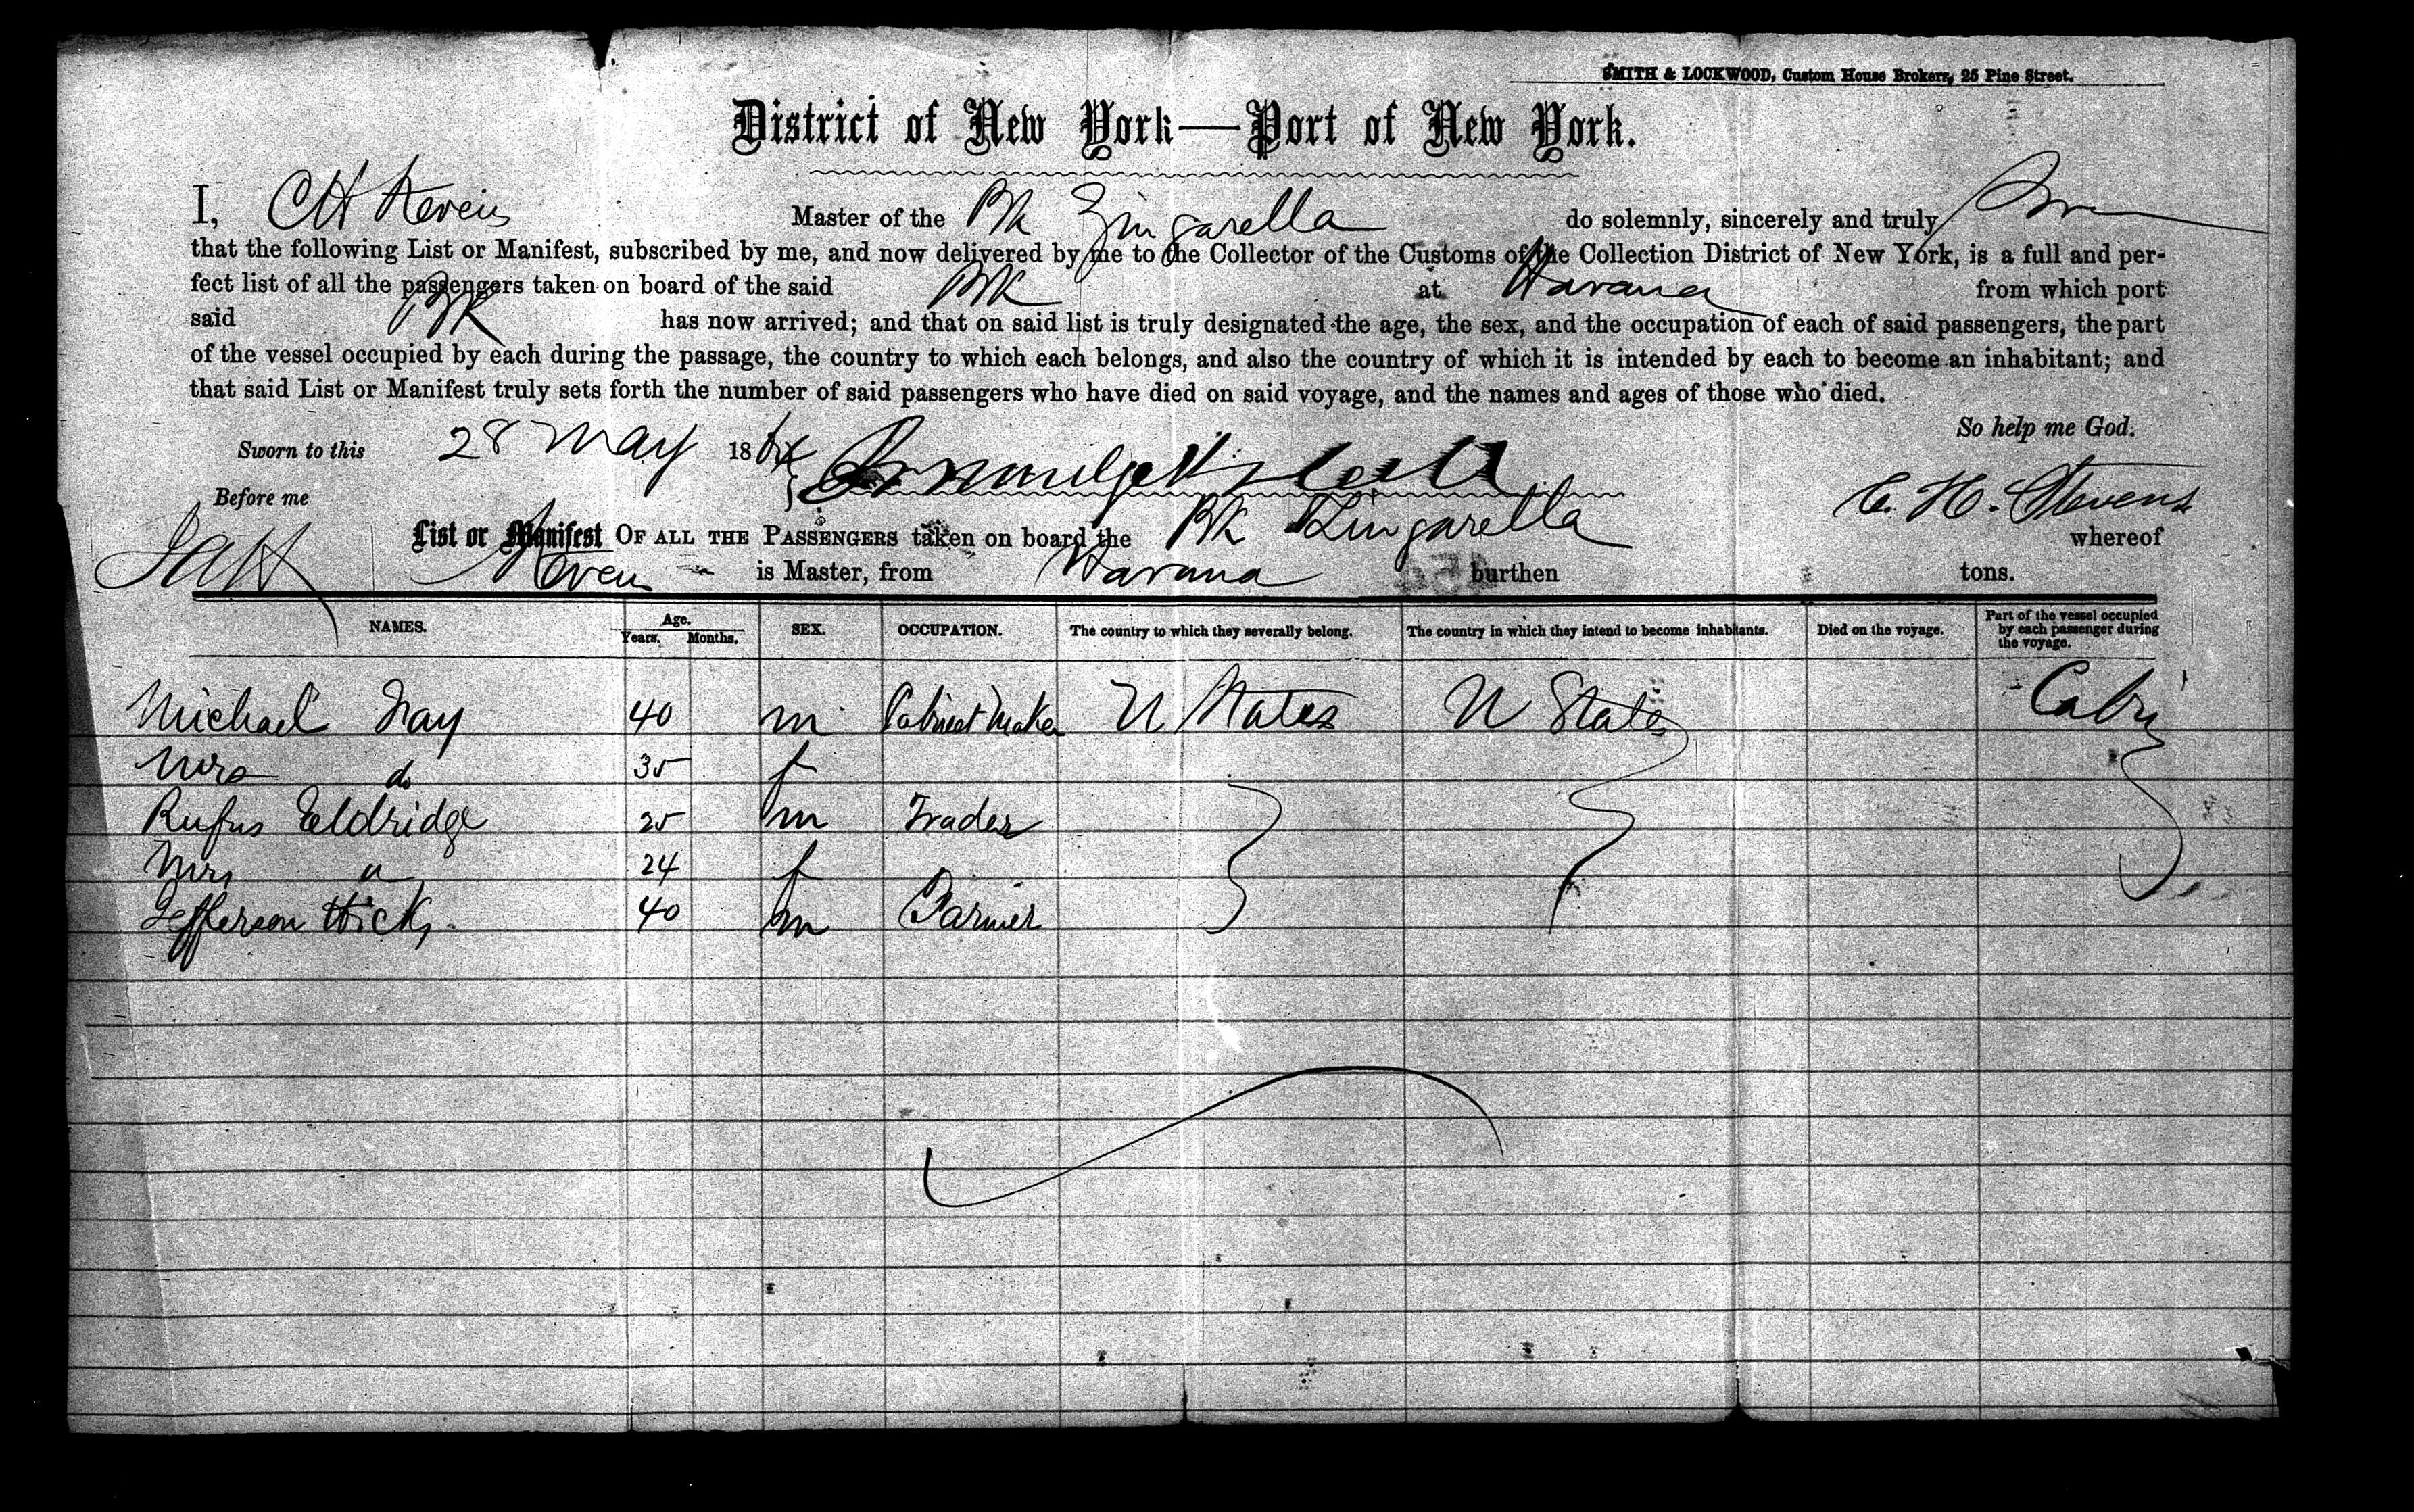 SMITH & LOCKWOOD, Custom House Brokers, 25 Pine Street.
District of New York—Port of New York.
I, CH Stevens Master of the Bk Zingarella do solemnly, sincerely and truly
that the following List or Manifest, subscribed by me, and now delivered by me to the Collector of the Customs of the Collection District of New York, is a full and per-
fect list of all the passengers taken on board of the said Bk at Havana from which port
said Bk has now arrived; and that on said list is truly designated the age, the sex, and the occupation of each of said passengers, the part
of the vessel occupied by each during the passage, the country to which each belongs, and also the country of which it is intended by each to become an inhabitant; and
that said List or Manifest truly sets forth the number of said passengers who have died on said voyage, and the names and ages of those who died.
So help me God.
Sworn to this 28 May 18
Before me
C. H. Stevens
List or Manifest OF ALL THE PASSENGERS taken on board the Bk Zingarella whereof
Steven is Master, from Havana burthen tons.
NAMES. Age. Years. Months. SEX. OCCUPATION. The country to which they severally belong. The country in which they intend to become inhabitants. Died on the voyage. Part of the vessel occupied by each passenger during the voyage.
Michael 40 m Cabinet Maker U States U States Cabin
Mrs do 35 f
Rufus Eldridge 25 m Trader
Mrs " 24 f
Jefferson Hicks 40 m Farmer